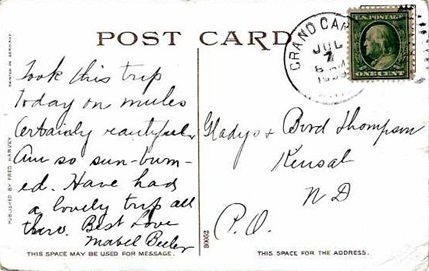 POST CARD
PRINTED IN GERMANY
PUBLISHED BY FRED HARVEY
Took this trip
Today on mules
Certainly beautiful
Am so sun-burn-
ed. Have had
a lovely trip all
thro. Best Love
Mabel
THIS SPACE MAY BE USED FOR MESSAGE.
GRAND CAN
JUL
7
U.S. POSTAGE
ONE CENT
Gladys & Bird Thompson
Kensal
ND
P.O.
THIS SPACE FOR THE ADDRESS.